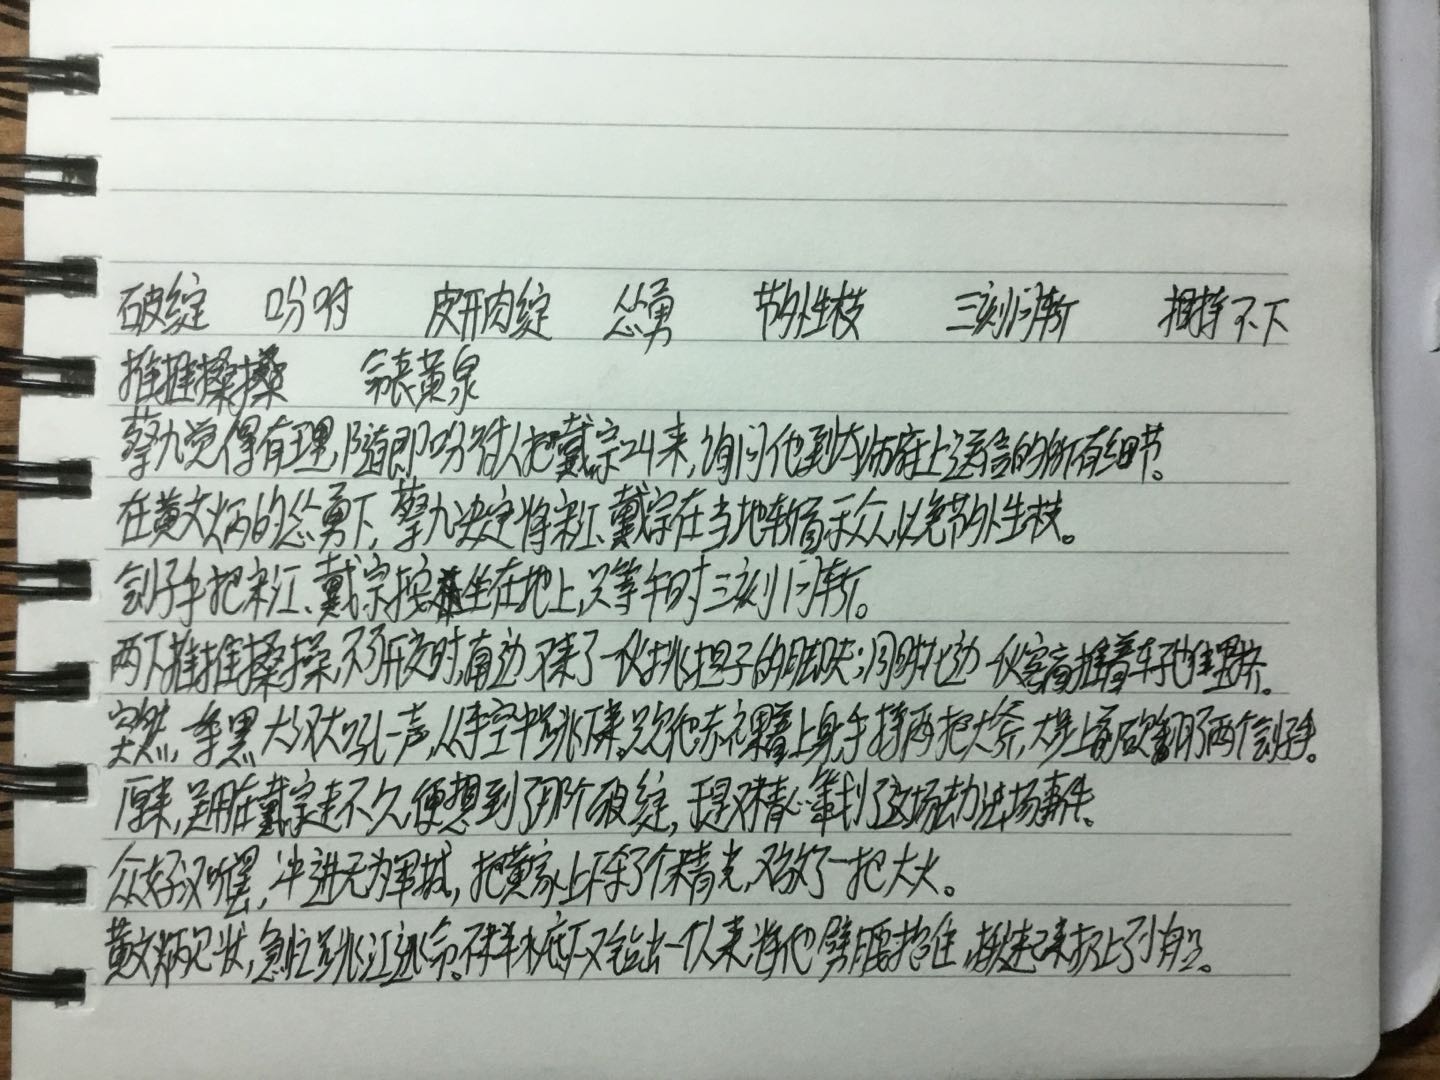 破绽 吩咐 皮开肉绽 怂勇 节外生枝 三刻问斩 相持不下
推推搡搡 命丧黄泉
蔡九觉得有理,随即吩咐人把戴宗叫来,询问他到太师府上送信的所有细节。
在黄文炳的怂勇下,蔡九决定将宋江、戴宗在当地斩首示众,以免节外生枝。
刽子手把宋江、戴宗按坐在地上,只等午时三刻问斩。
两下推推搡搡,不可开交时,南边又来了一伙挑担子的脚夫;同时北边一伙客商推着车子也往里挤。
突然,一条黑大汉大吼一声,从半空中跳下来,只见他赤裸着上身,手持两把大斧,大步上前砍翻了两个刽子手。
原来,吴用在戴宗走不久,便想到了那个破绽,于是又精心策划了这场劫法场事件。
众好汉听罢,冲进无为军城,把黄家上下杀了个精光,又放了一把大火。
黄文炳见状,急忙跳江逃命。不料水底下又钻出一个人来,将他劈腰抱住,揪起来扔上了小船。